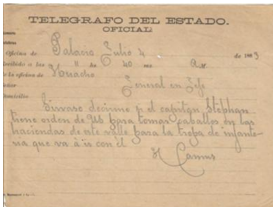 TELEGRAFO DEL ESTADO.
OFICIAL
Oficina de Palacio, Julio 4 1883
Recibido a las 11 de 40
a la oficina de Huacho
General en Jefe
Sirvase decirme p. el capitan Stephan
tiene orden de Ud para tomar caballos en las
haciendas de este valle para la tropa de infante
ria que va á ir con él
H Camus